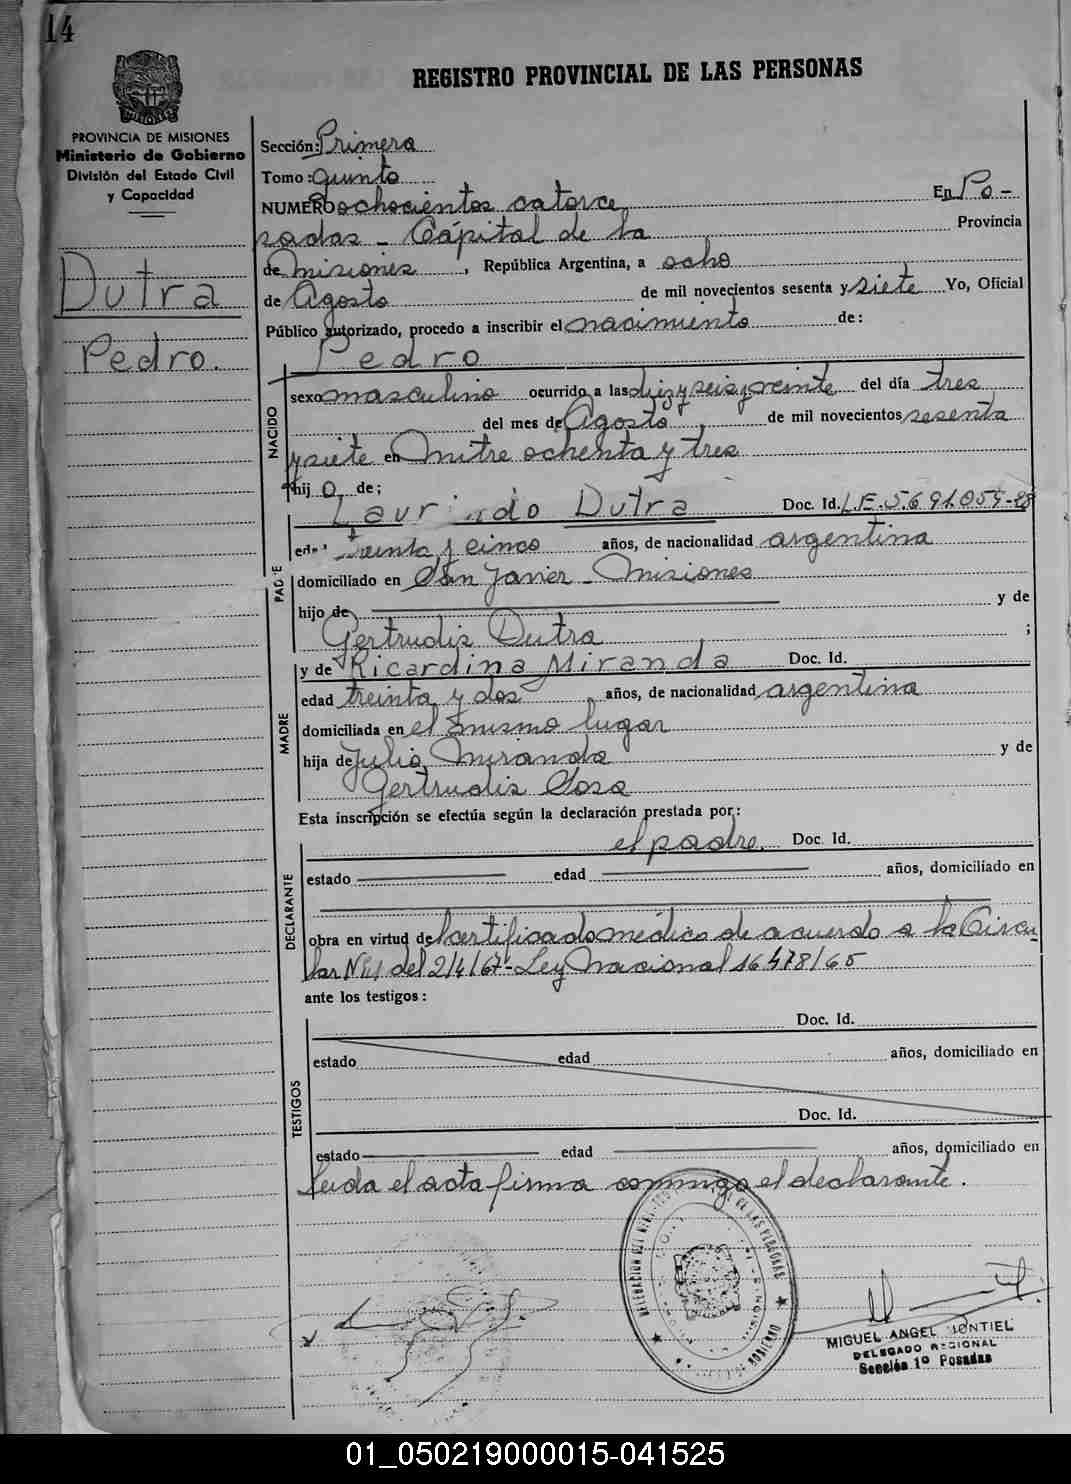 14
REGISTRO PROVINCIAL DE LAS PERSONAS
PROVINCIA DE MISIONES
Ministerio de Gobierno
División del Estado Civil
y Capacidad
Dutra
Pedro.
Sección: Primera
Tomo: Quinto
NUMERO ochocientos catorce En Po-
sadas - Capital de la Provincia
de Misiones, República Argentina, a ocho
de Agosto de mil novecientos sesenta y siete Yo, Oficial
Público autorizado, procedo a inscribir el nacimiento de:
Pedro
NACIDO
sexo masculino ocurrido a las diez y seis y veinte del día tres
del mes de Agosto de mil novecientos sesenta
y siete en Mitre ochenta y tres
hijo de;
Laurindo Dutra Doc. Id. L.E. 5.691.059-
PADRE
edad treinta y cinco años, de nacionalidad argentina
domiciliado en San Javier - Misiones
hijo de y de
Gertrudis Dutra ;
y de Ricardina Miranda Doc. Id.
MADRE
edad treinta y dos años, de nacionalidad argentina
domiciliada en el mismo lugar
hija de Julio Miranda y de
Gertrudis Sosa
Esta inscripción se efectúa según la declaración prestada por:
el padre. Doc. Id.
DECLARANTE
estado edad años, domiciliado en
obra en virtud de certificado médico de acuerdo a la Circu-
lar Nº1 del 2/4/67 - Ley Nacional 16478/65
ante los testigos:
Doc. Id.
TESTIGOS
estado edad años, domiciliado en
Doc. Id.
estado edad años, domiciliado en
Leida el acta firma conmigo el declarante.
MIGUEL ANGEL MONTIEL
DELEGADO REGIONAL
Sección 1º Posadas
01_050219000015-041525